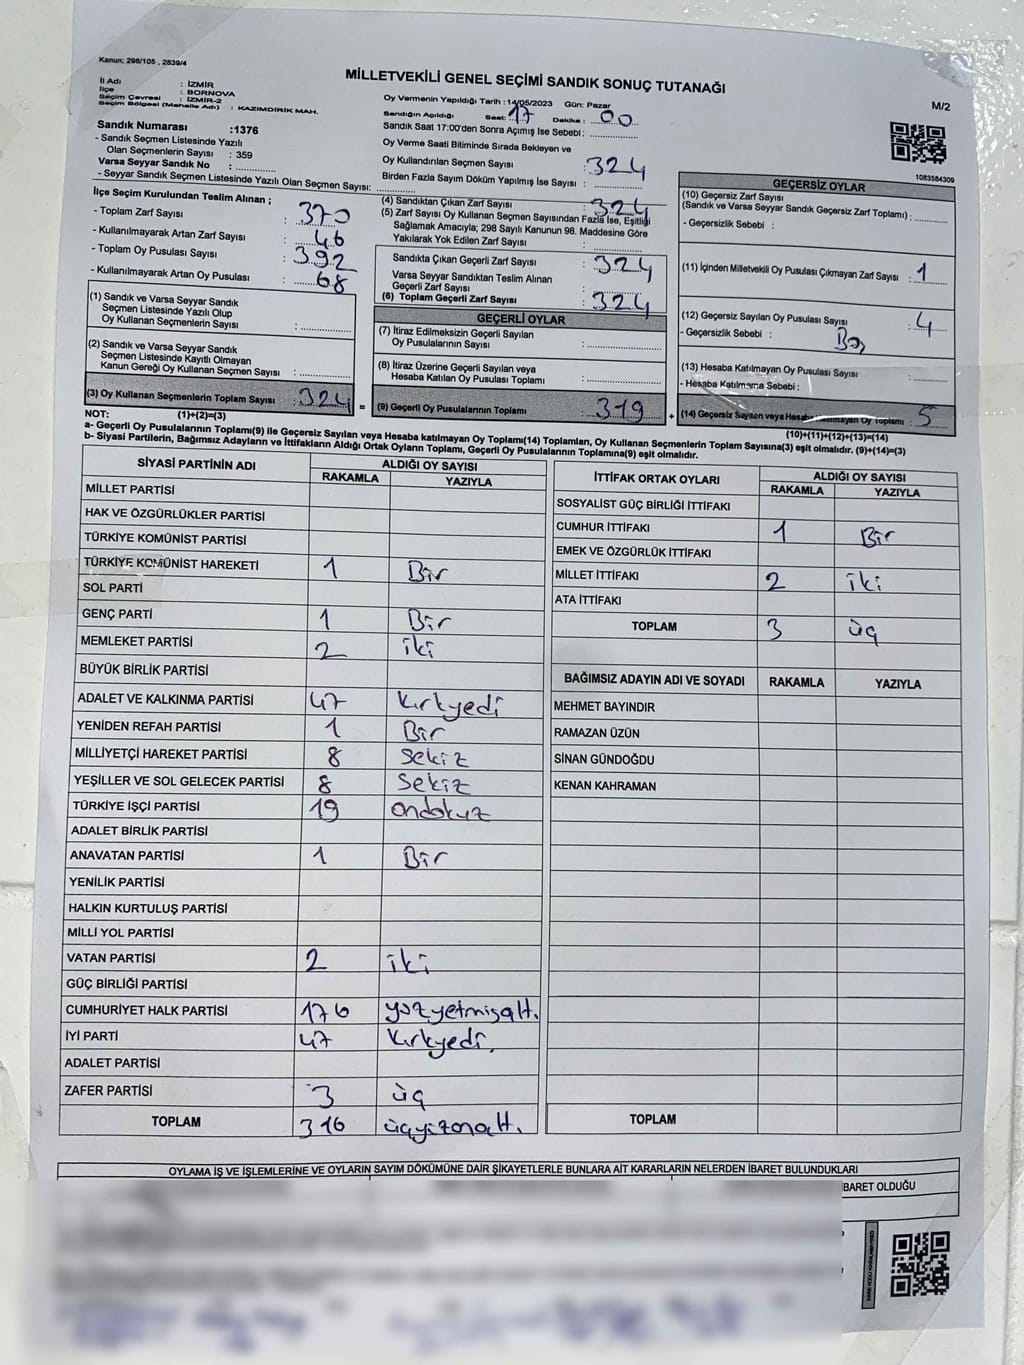 Kanun; 298/105 , 2839/4
MİLLETVEKİLİ GENEL SEÇİMİ SANDIK SONUÇ TUTANAĞI
M/2
İl Adı : İZMİR
İlçe : BORNOVA
Seçim Çevresi : İZMİR-2
Seçim Bölgesi (Mahalle Adı) : KAZIMDİRİK MAH.
Sandık Numarası :1376
- Sandık Seçmen Listesinde Yazılı
Olan Seçmenlerin Sayısı : 359
Varsa Seyyar Sandık No :
- Seyyar Sandık Seçmen Listesinde Yazılı Olan Seçmen Sayısı:
İlçe Seçim Kurulundan Teslim Alınan ;
- Toplam Zarf Sayısı : 370
- Kullanılmayarak Artan Zarf Sayısı : 46
- Toplam Oy Pusulası Sayısı : 392
- Kullanılmayarak Artan Oy Pusulası : 68
(1) Sandık ve Varsa Seyyar Sandık
Seçmen Listesinde Yazılı Olup
Oy Kullanan Seçmenlerin Sayısı :
(2) Sandık ve Varsa Seyyar Sandık
Seçmen Listesinde Kayıtlı Olmayan
Kanun Gereği Oy Kullanan Seçmen Sayısı :
(3) Oy Kullanan Seçmenlerin Toplam Sayısı : 324 =
Oy Vermenin Yapıldığı Tarih :14/05/2023 Gün: Pazar
Sandığın Açıldığı Saat: 17 Dakika : 00
Sandık Saat 17:00'den Sonra Açımış İse Sebebi :
Oy Verme Saati Bitiminde Sırada Bekleyen ve
Oy Kullandırılan Seçmen Sayısı : 324
Birden Fazla Sayım Döküm Yapılmış İse Sayısı :
(4) Sandıktan Çıkan Zarf Sayısı : 324
(5) Zarf Sayısı Oy Kullanan Seçmen Sayısından Fazla İse, Eşitliği
Sağlamak Amacıyla; 298 Sayılı Kanunun 98. Maddesine Göre
Yakılarak Yok Edilen Zarf Sayısı :
Sandıkta Çıkan Geçerli Zarf Sayısı : 324
Varsa Seyyar Sandıktan Teslim Alınan
Geçerli Zarf Sayısı :
(6) Toplam Geçerli Zarf Sayısı : 324
GEÇERLİ OYLAR
(7) İtiraz Edilmeksizin Geçerli Sayılan
Oy Pusulalarının Sayısı :
(8) İtiraz Üzerine Geçerli Sayılan veya
Hesaba Katılan Oy Pusulası Toplamı :
(9) Geçerli Oy Pusulalarının Toplamı : 319 +
1083584309
GEÇERSİZ OYLAR
(10) Geçersiz Zarf Sayısı
(Sandık ve Varsa Seyyar Sandık Geçersiz Zarf Toplamı) :
- Geçersizlik Sebebi :
(11) İçinden Milletvekili Oy Pusulası Çıkmayan Zarf Sayısı : 1
(12) Geçersiz Sayılan Oy Pusulası Sayısı : 4
- Geçersizlik Sebebi : Boş
(13) Hesaba Katılmayan Oy Pusulası Sayısı :
- Hesaba Katılmama Sebebi :
(14) Geçersiz Sayılan veya Hesaba Katılmayan Oy Toplamı : 5
NOT: (1)+(2)=(3)
(10)+(11)+(12)+(13)=(14)
a- Geçerli Oy Pusulalarının Toplamı(9) ile Geçersiz Sayılan veya Hesaba katılmayan Oy Toplamı(14) Toplamları, Oy Kullanan Seçmenlerin Toplam Sayısına(3) eşit olmalıdır. (9)+(14)=(3)
b- Siyasi Partilerin, Bağımsız Adayların ve İttifakların Aldığı Ortak Oyların Toplamı, Geçerli Oy Pusulalarının Toplamına(9) eşit olmalıdır.
SİYASİ PARTİNİN ADI ALDIĞI OY SAYISI
RAKAMLA YAZIYLA
MİLLET PARTİSİ
HAK VE ÖZGÜRLÜKLER PARTİSİ
TÜRKİYE KOMÜNİST PARTİSİ
TÜRKİYE KOMÜNİST HAREKETİ 1 Bir
SOL PARTİ
GENÇ PARTİ 1 Bir
MEMLEKET PARTİSİ 2 iki
BÜYÜK BİRLİK PARTİSİ
ADALET VE KALKINMA PARTİSİ 47 Kırkyedi
YENİDEN REFAH PARTİSİ 1 Bir
MİLLİYETÇİ HAREKET PARTİSİ 8 Sekiz
YEŞİLLER VE SOL GELECEK PARTİSİ 8 Sekiz
TÜRKİYE İŞÇİ PARTİSİ 19 ondokuz
ADALET BİRLİK PARTİSİ
ANAVATAN PARTİSİ 1 Bir
YENİLİK PARTİSİ
HALKIN KURTULUŞ PARTİSİ
MİLLİ YOL PARTİSİ
VATAN PARTİSİ 2 iki
GÜÇ BİRLİĞİ PARTİSİ
CUMHURİYET HALK PARTİSİ 176 yüzyetmişalt.
İYİ PARTİ 47 Kırkyedi.
ADALET PARTİSİ
ZAFER PARTİSİ 3 üç
TOPLAM 316 üçyüzonalt.
İTTİFAK ORTAK OYLARI ALDIĞI OY SAYISI
RAKAMLA YAZIYLA
SOSYALİST GÜÇ BİRLİĞİ İTTİFAKI
CUMHUR İTTİFAKI 1 Bir
EMEK VE ÖZGÜRLÜK İTTİFAKI
MİLLET İTTİFAKI 2 iki
ATA İTTİFAKI
TOPLAM 3 üç
BAĞIMSIZ ADAYIN ADI VE SOYADI RAKAMLA YAZIYLA
MEHMET BAYINDIR
RAMAZAN ÜZÜN
SİNAN GÜNDOĞDU
KENAN KAHRAMAN
TOPLAM
OYLAMA İŞ VE İŞLEMLERİNE VE OYLARIN SAYIM DÖKÜMÜNE DAİR ŞİKAYETLERLE BUNLARA AİT KARARLARIN NELERDEN İBARET BULUNDUKLARI
BARET OLDUĞU